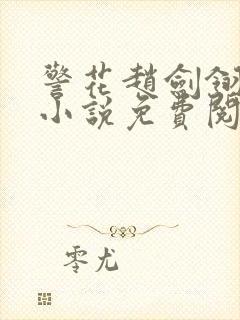 警花趙劍翎
小說免費閱
零尤